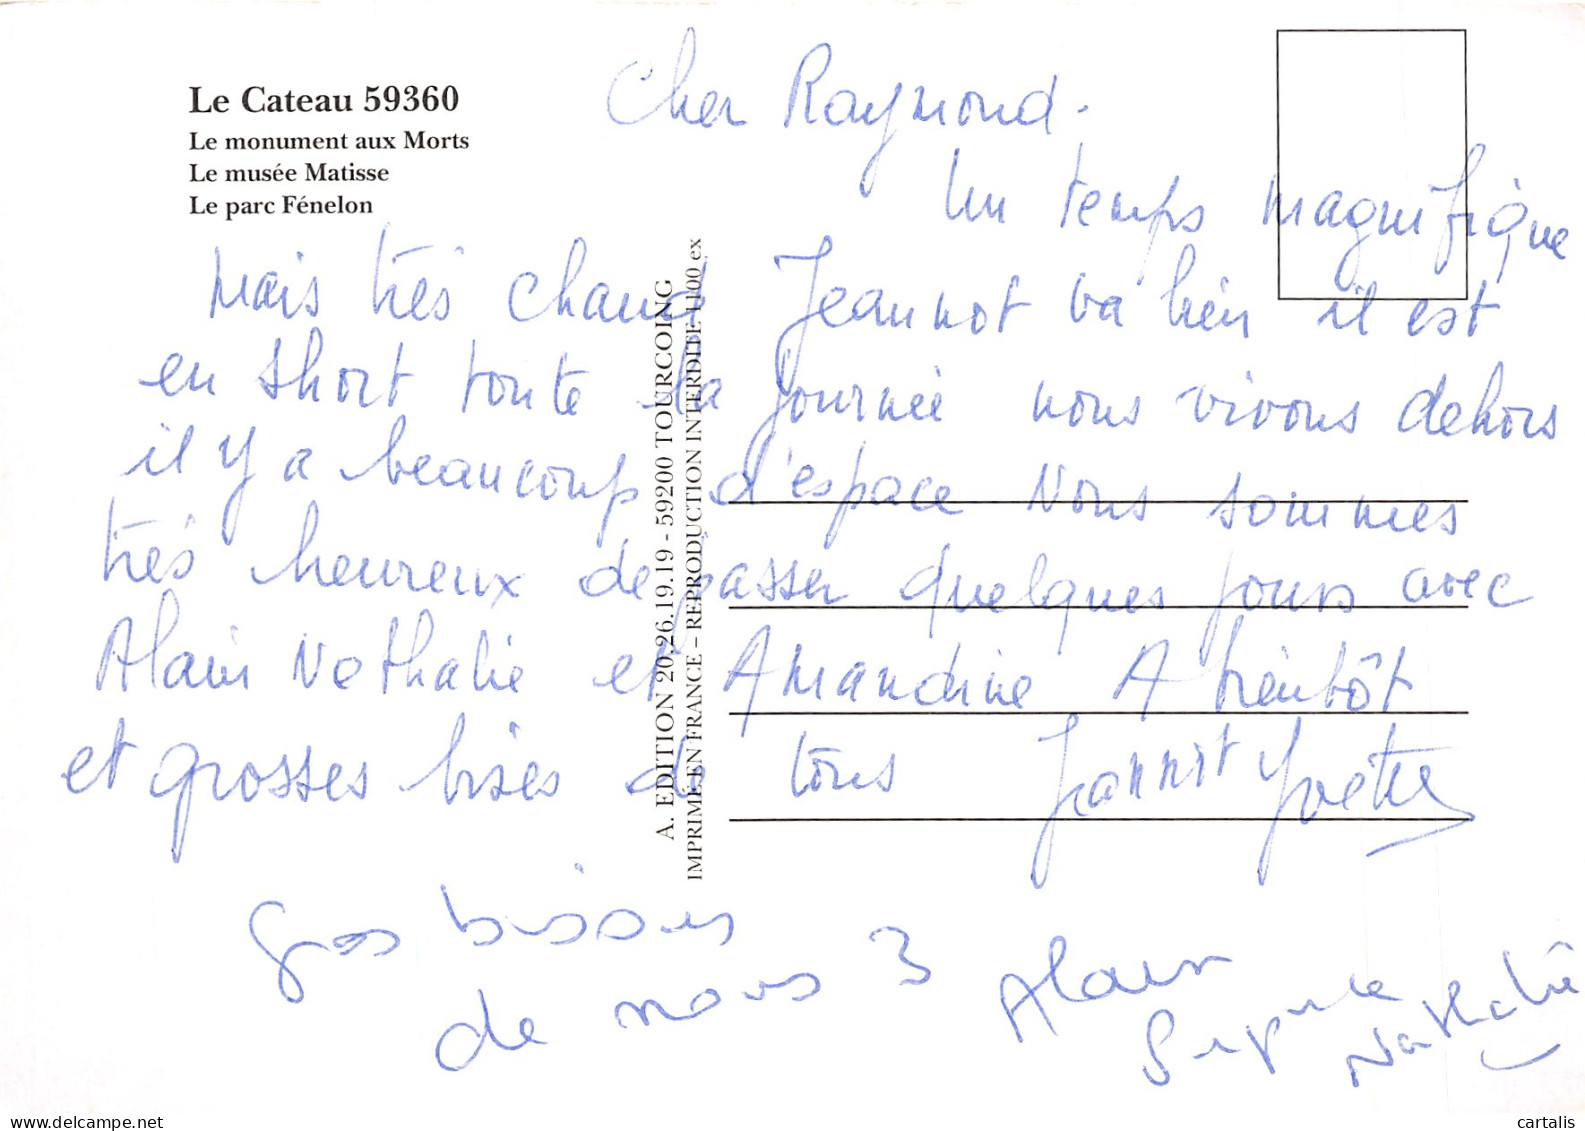 Le Cateau 59360
Le monument aux Morts
Le musée Matisse
Le parc Fénelon
Cher Raymond.
Un temps magnifique
Mais très chaud Jeannot va bien il est
en short toute la journée nous vivons dehors
il y a beaucoup d'espace Nous sommes
très heureux de passer quelques jours avec
Alain Nathalie et Amandine A bientôt
et grosses bises de tous Jeannot Yvette
A. EDITION 20.26.19.19 - 59200 TOURCOING
IMPRIMÉ EN FRANCE - REPRODUCTION INTERDITE 1100 ex
Gros bisous
de nous 3 Alain
Nathalie
delcampe.net
cartalis